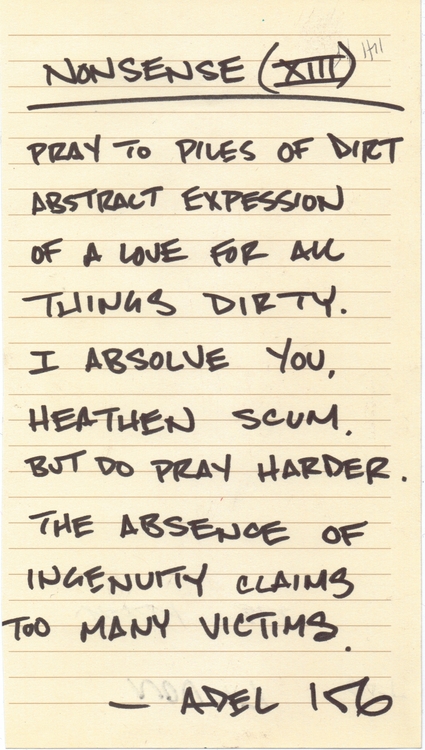 NONSENSE (XIII)
PRAY TO PILES OF DIRT
ABSTRACT EXPESSION
OF A LOVE FOR ALL
THINGS DIRTY.
I ABSOLVE YOU,
HEATHEN SCUM.
BUT DO PRAY HARDER.
THE ABSENCE OF
INGENUITY CLAIMS
TOO MANY VICTIMS.
— ADEL 156